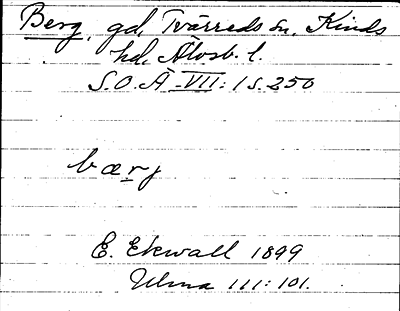 Berg, gd, Tvärreds sn, Kinds
hd, Älvsb. l.
S.O.Ä VII: 1 s. 250
bærj
E. Ekwall 1899
Ulma 111: 101.